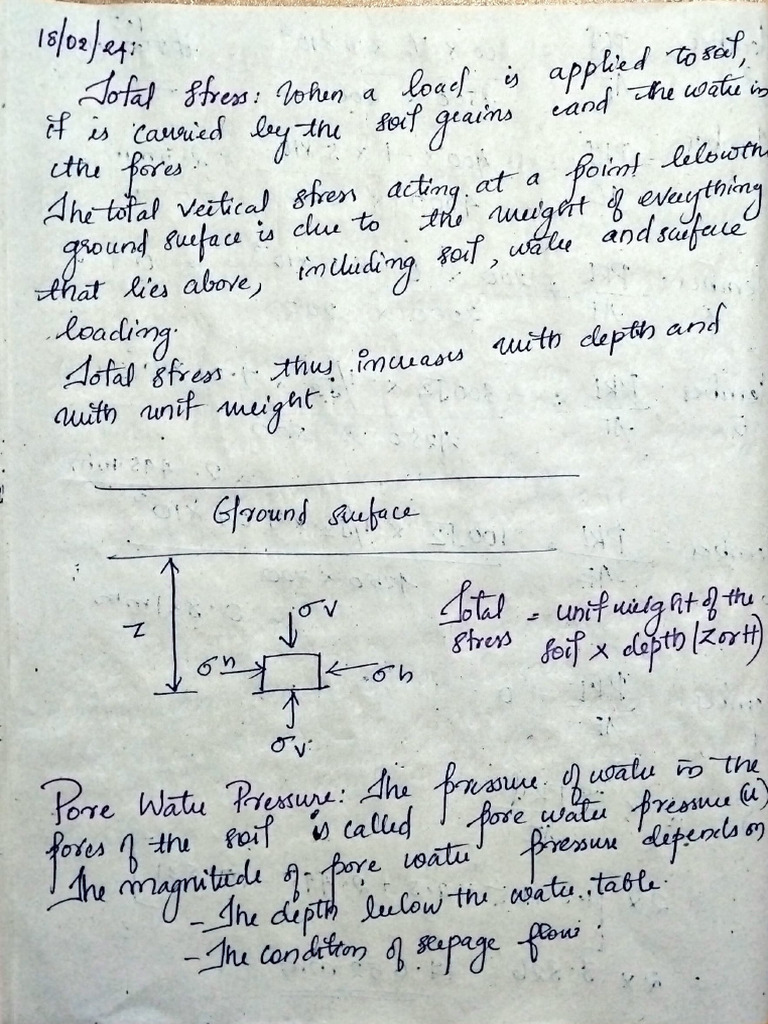 18/02/24:
Total Stress: When a load is applied to soil,
it is carried by the soil grains and the water in
the pores.
The total vertical stress acting at a point below the
ground surface is due to the weight of everything
that lies above, including soil, water and surface
loading.
Total stress thus increases with depth and
with unit weight.
Ground surface
Z
σv
σh
σh
σv
Total stress = unit weight of the
soil x depth (Z or H)
Pore Water Pressure: The pressure of water in the
pores of the soil is called pore water pressure (u)
The magnitude of pore water pressure depends on
- The depth below the water table.
- The condition of seepage flow.